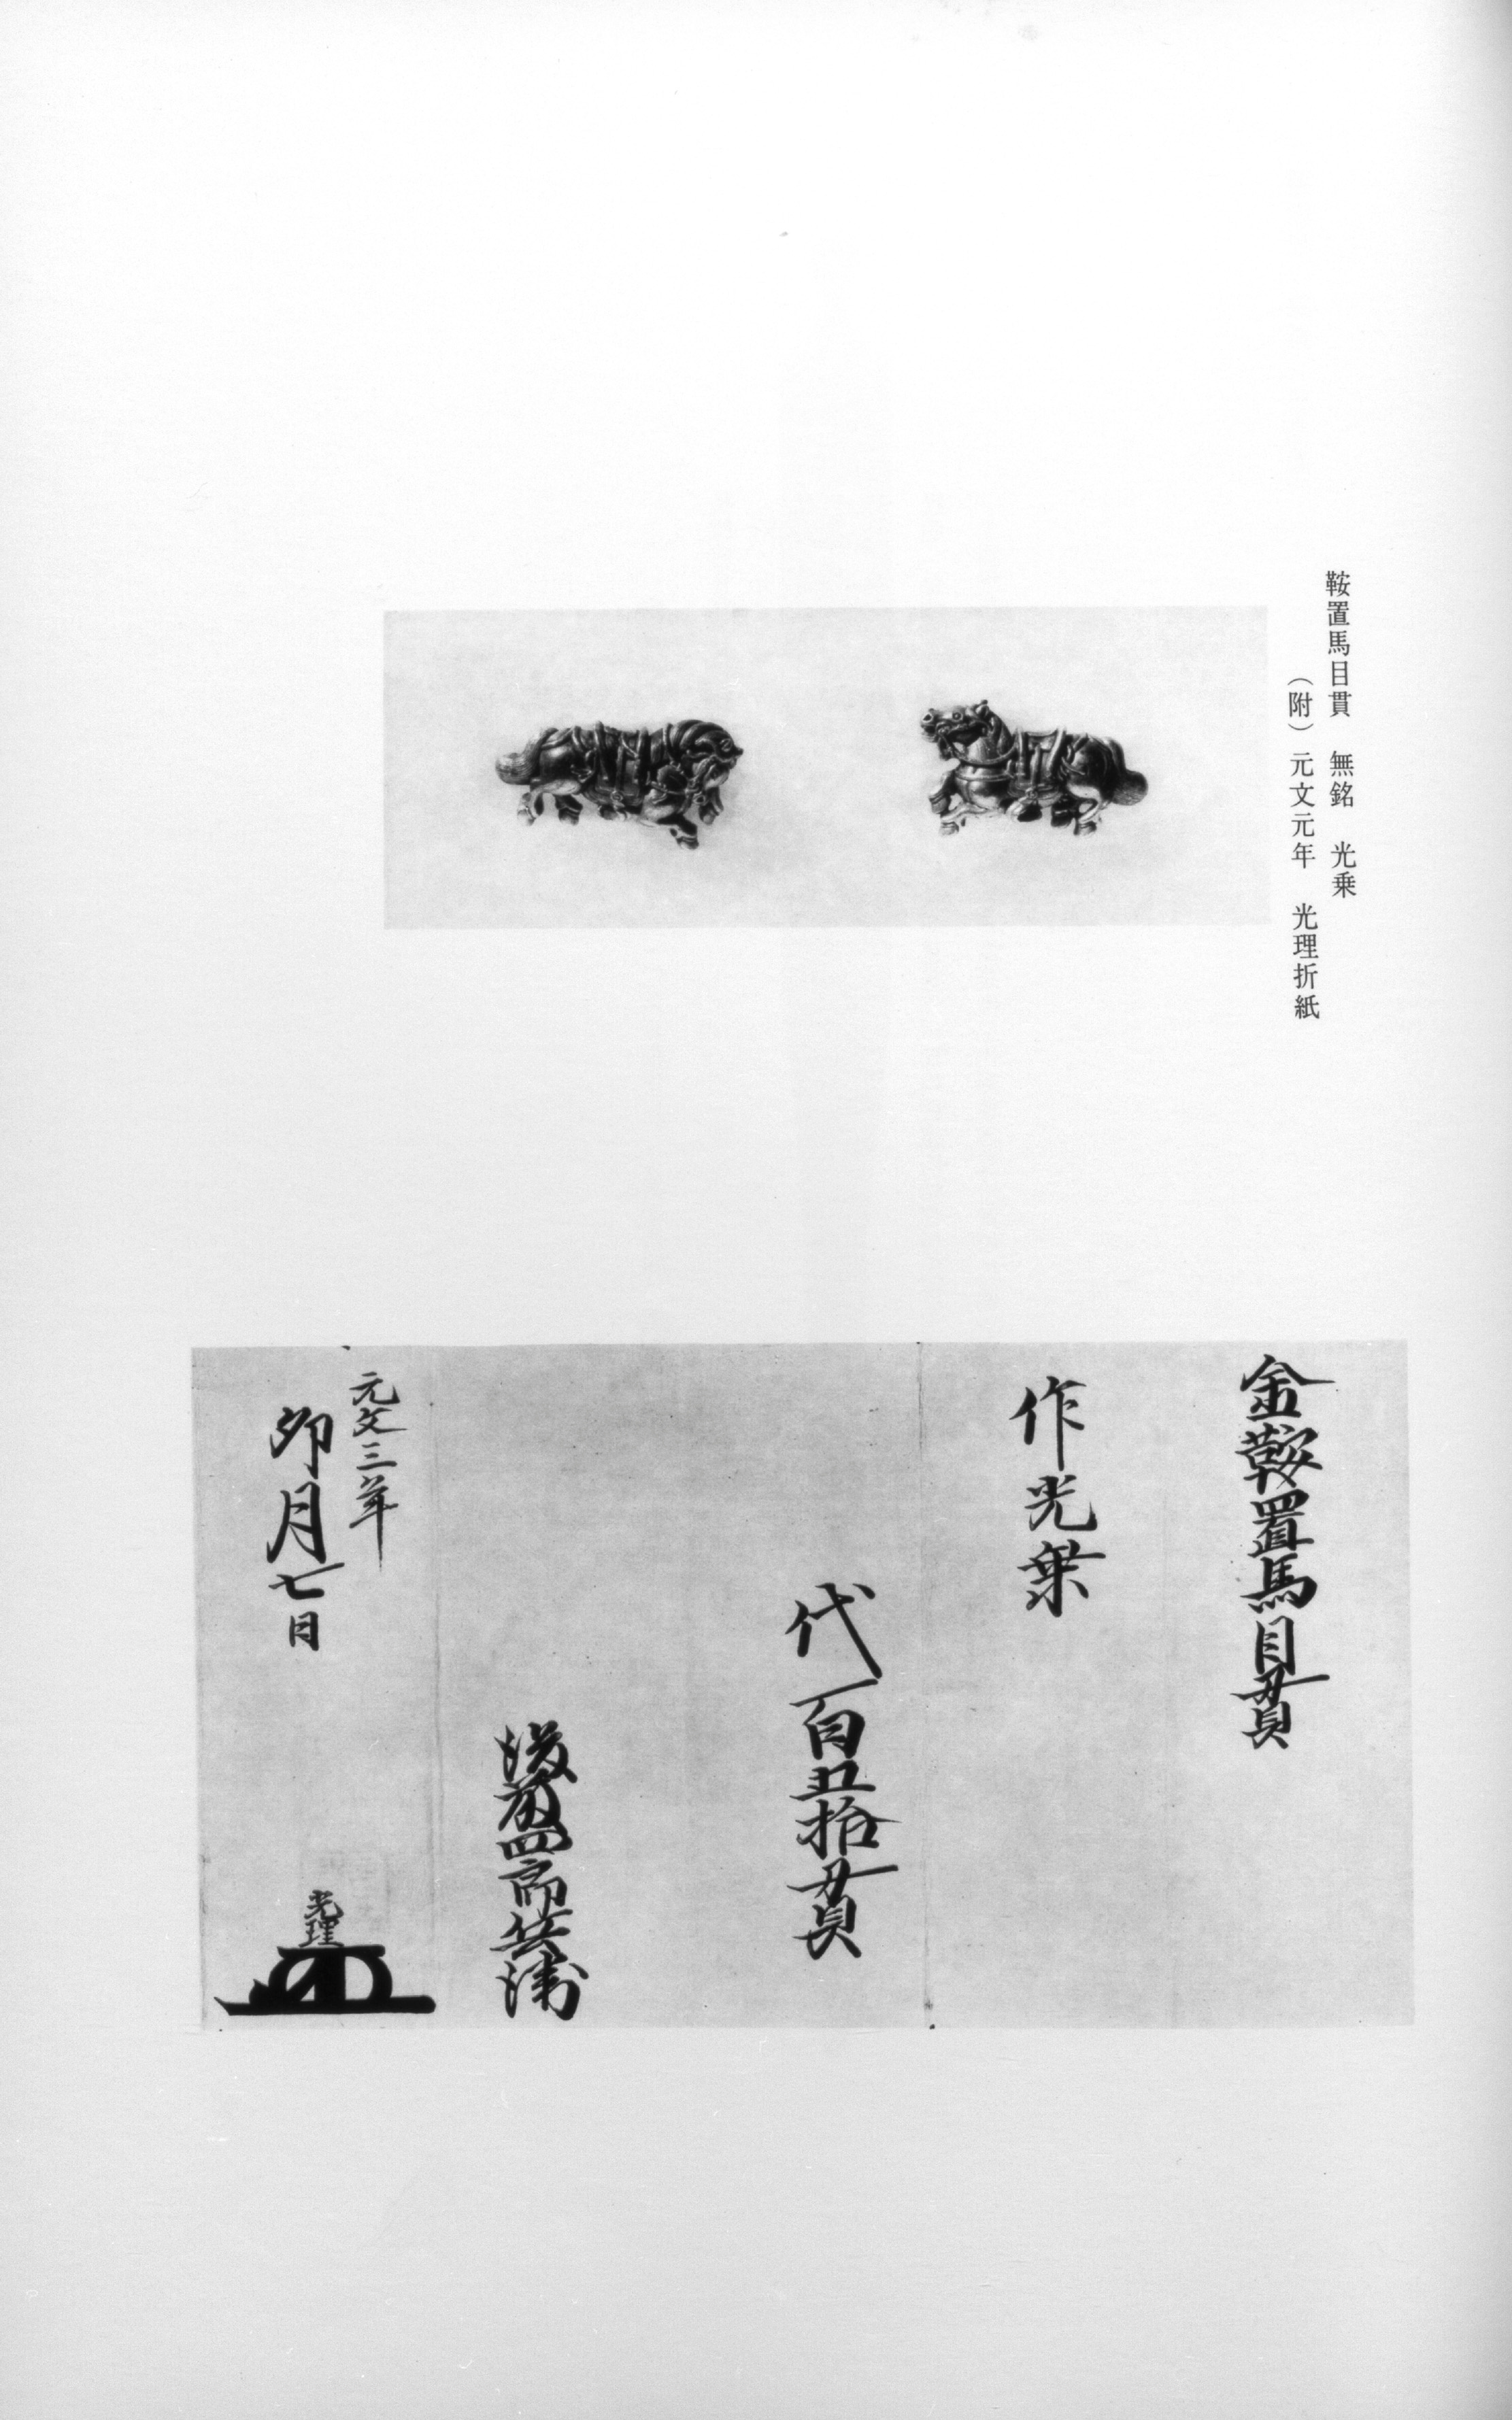 鞍置馬目貫　無銘　光乗
（附）元文元年　光理折紙
金鞍置馬目貫
作光乗
代百五拾貫
後藤四郎兵衛
元文三年
卯月七日
光理